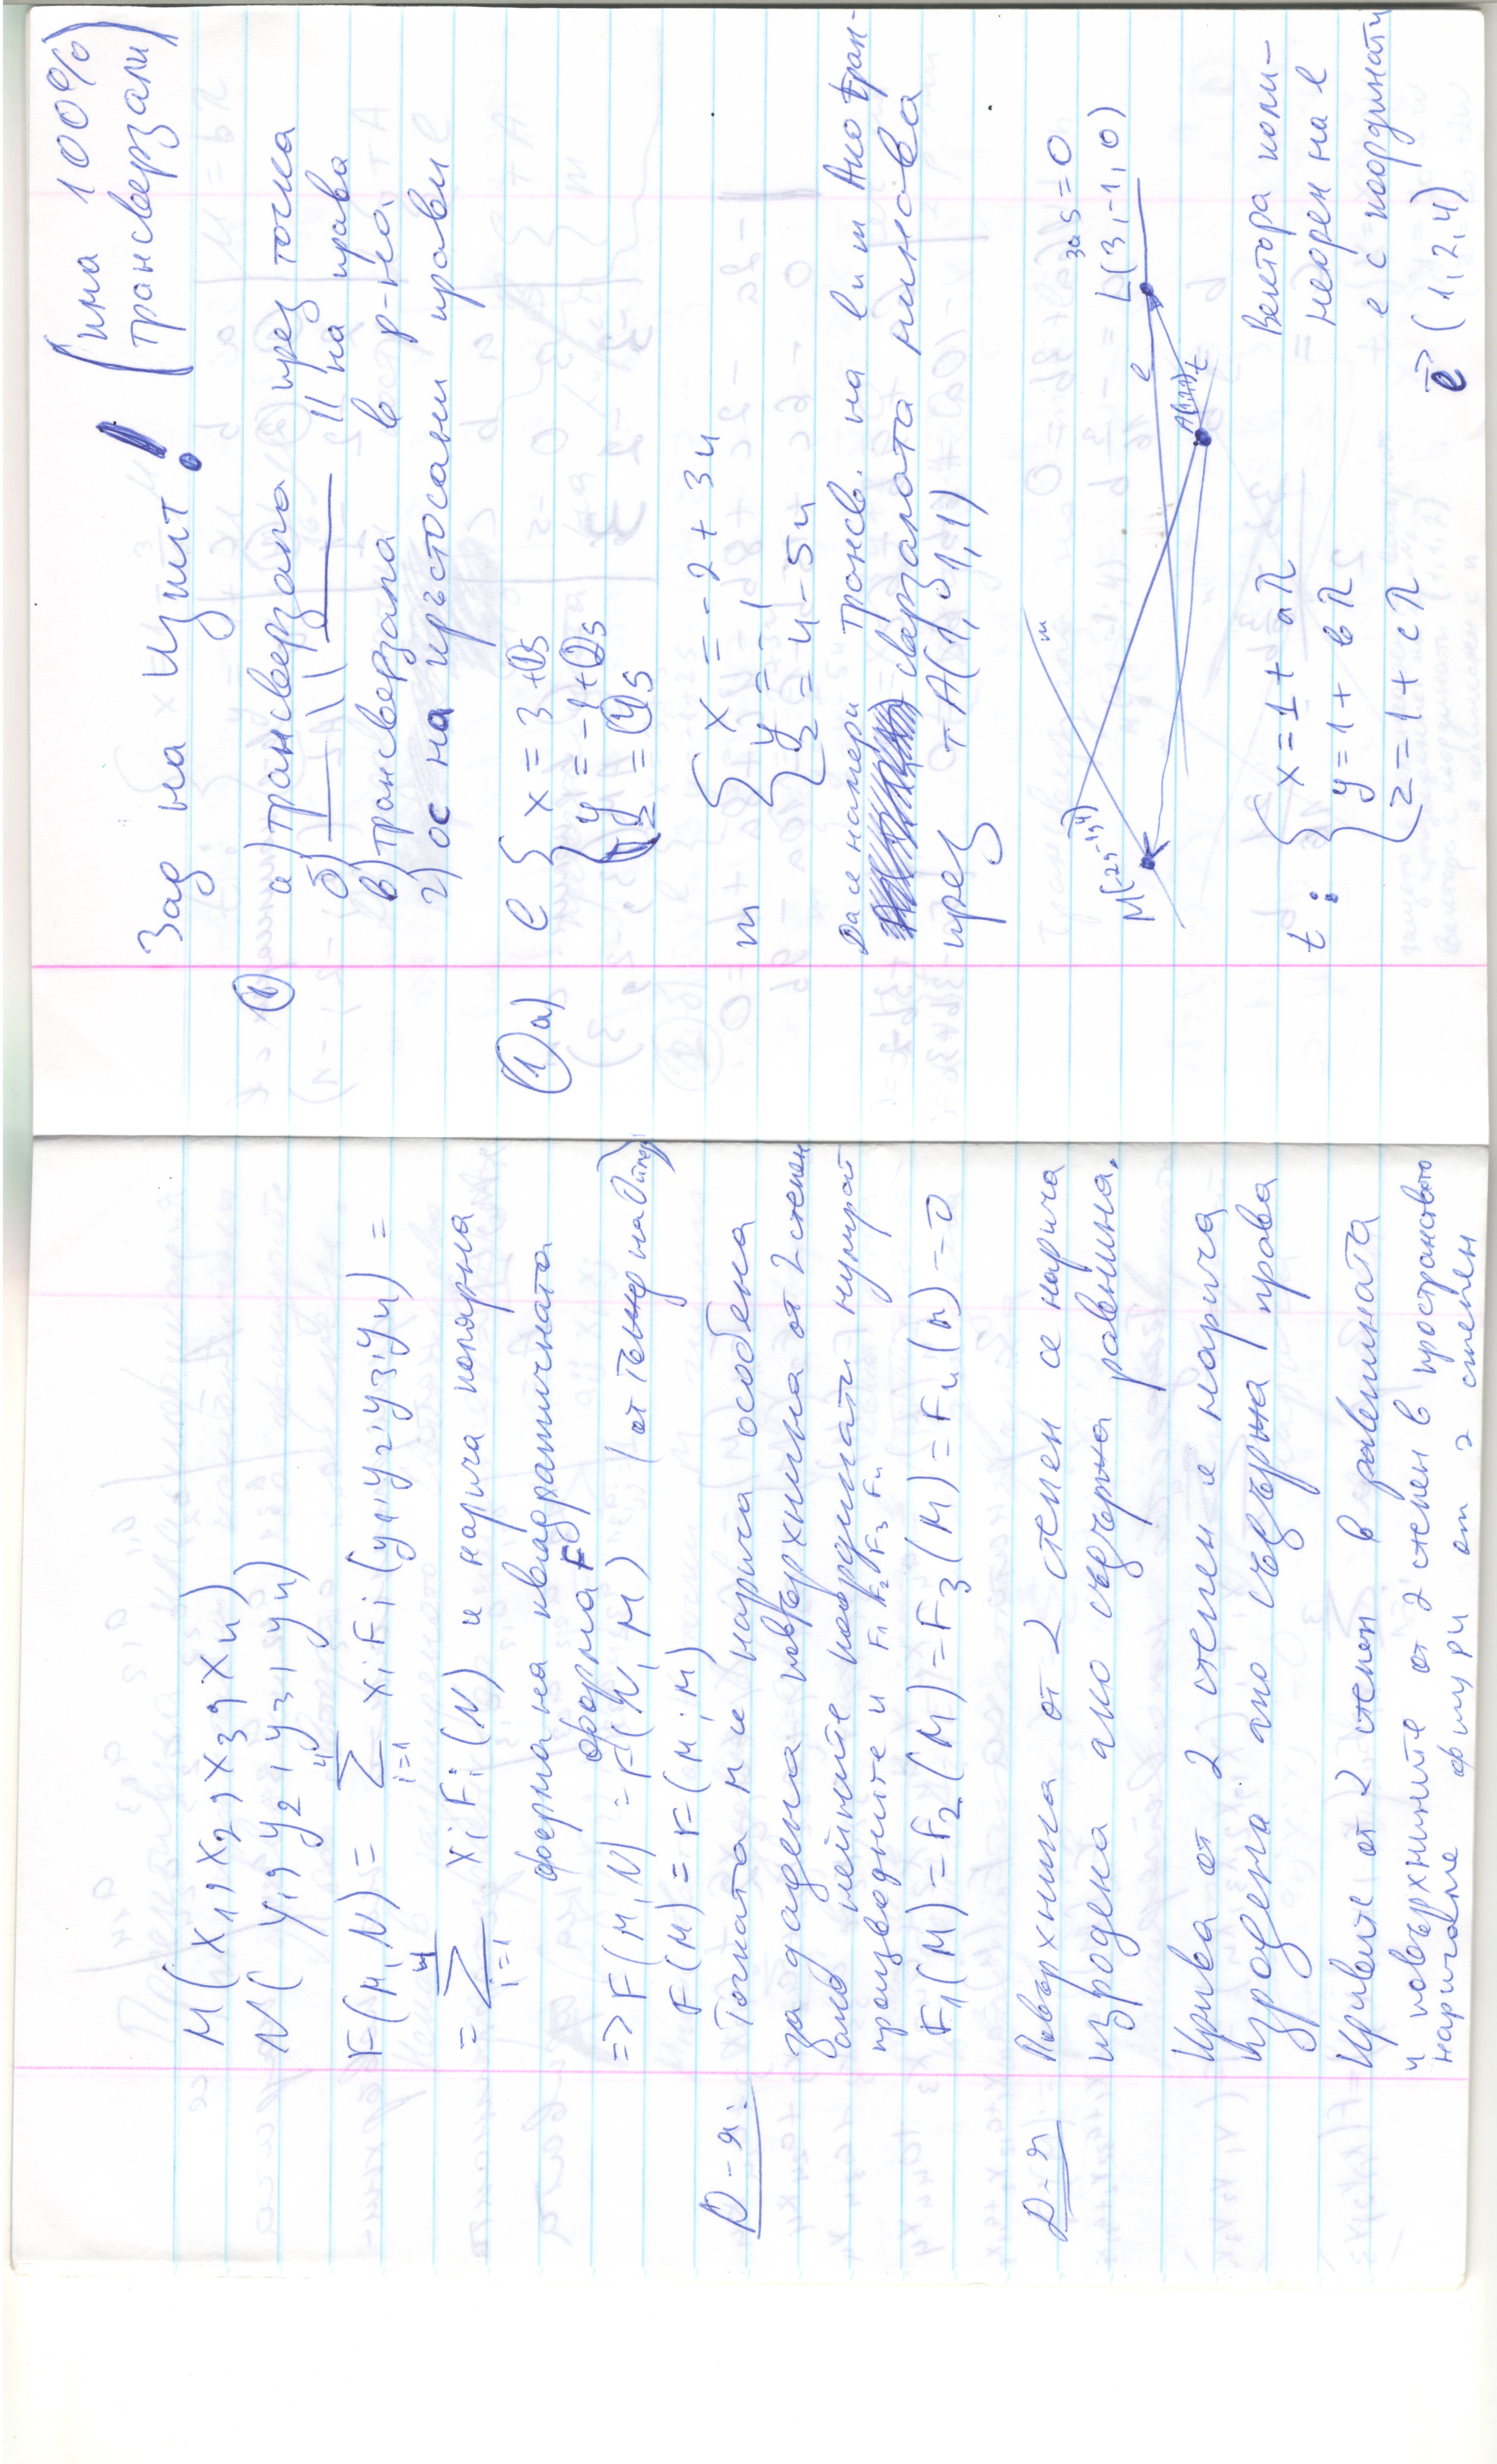 M(x₁, x₂, x₃, x₄)
N(y₁, y₂, y₃, y₄)
F(M,N) = ∑ᵢ₌₁⁴ xᵢFᵢ(y₁, y₂, y₃, y₄) =
= ∑ᵢ₌₁⁴ xᵢFᵢ(N) се нарича полярна
форма на квадратичната
форма F
=> F(M,N) = F(N,M)
F(M) = F(M;M)
Д-я: Точката M се нарича особена
за дадена повърхнина от 2 степен
ако нейните координати нулират
производните и F₁ F₂ F₃ F₄
F₁(M) = F₂(M) = F₃(M) = F₄(M) = 0
Д-я Повърхнина от 2 степен се нарича
изродена ако съдържа равнина.
Крива от 2 степен се нарича
изродена ако съдържа права
Кривите от 2 степен в равнината
и повърхнините от 2 степен в пространството
наричаме фигури от 2 степен
Зад на Изпит! (има 100%
трансверзали)
① а) трансверзала през точка
б) —||— || на права
в) трансверзала в р-на
г) ос на кръстосани прави
① а) l { x = 3 + 1s
y = -1 + 2s
z = 4s
m { x = -2 + 3u
y = -1
z = 4 - 5u
Да се намери трансв. на l и m Ако тран-
сверзалата минава
през т A(1,1,1)
m
M(-2, -1, 4)
A(1,1,1) t
l
за s=0
L(3,-1,0)
t: { x = 1 + aλ
y = 1 + bλ
z = 1 + cλ
Вектора коли-
неарен на l
е с координати
l⃗ (1,2,4)